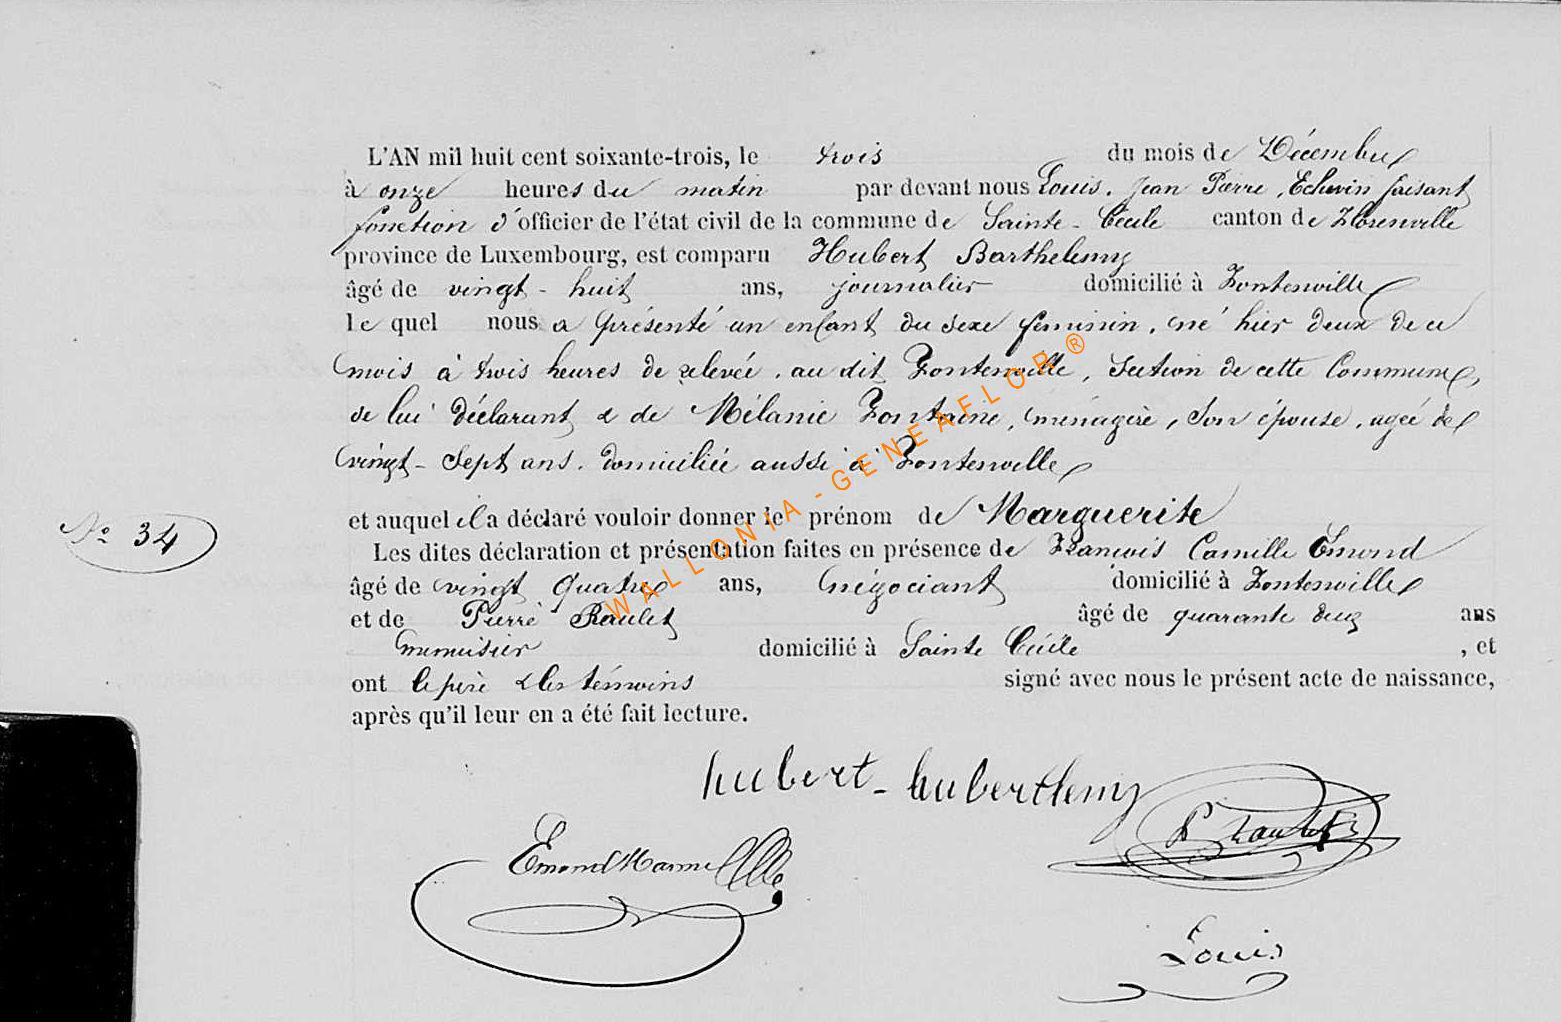 L'AN mil huit cent soixante-trois, le trois du mois de Décembre
à onze heures du matin par devant nous Louis, Jean Pierre, Echevin faisant
fonction d'officier de l'état civil de la commune de Sainte-Cécile canton de Florenville
province de Luxembourg, est comparu Hubert Barthelemy
âgé de vingt-huit ans, journalier domicilié à Fontenoille
lequel nous a présenté un enfant du sexe féminin, né hier deux de ce
mois à trois heures de relevée, au dit Fontenoille, Section de cette Commune,
de lui déclarant & de Mélanie Fontaine, ménagère, son épouse, agée de
vingt-sept ans, domiciliée aussi à Fontenoille
et auquel il a déclaré vouloir donner le prénom de Marguerite
N° 34
Les dites déclaration et présentation faites en présence de François Camille Emond
âgé de vingt quatre ans, négociant domicilié à Fontenoille
et de Pierre Raulet âgé de quarante deux ans
menuisier domicilié à Sainte Cécile, et
ont le père & les témoins signé avec nous le présent acte de naissance,
après qu'il leur en a été fait lecture.
hubert-huberthemy
Emond
Louis
WALLONIA-GENEAFLOR®